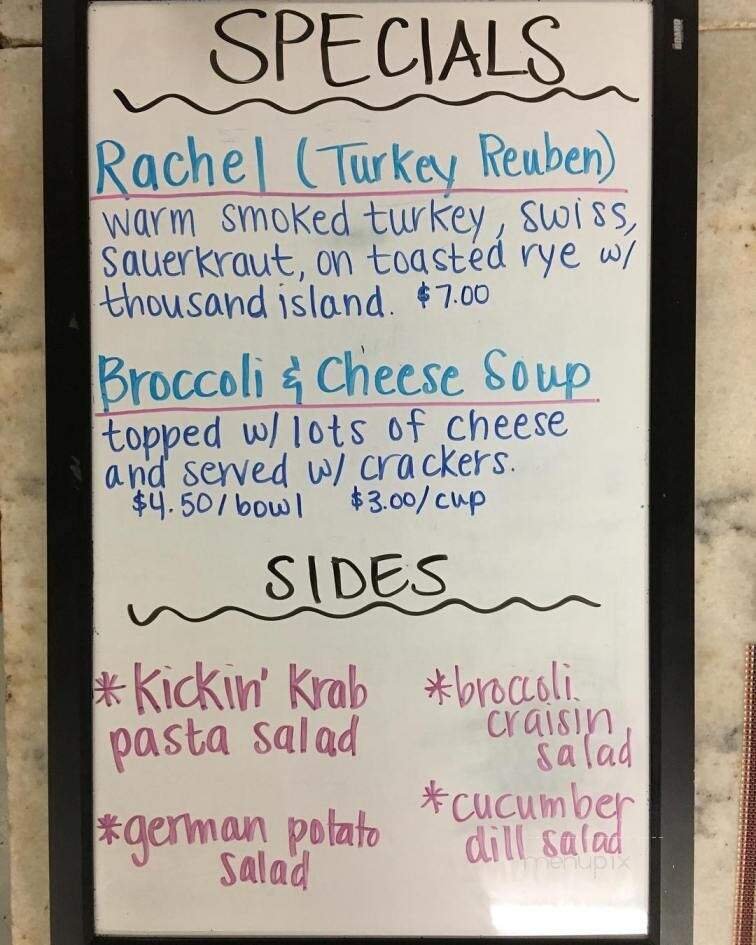 SPECIALS
Rachel (Turkey Reuben)
warm smoked turkey, swiss,
sauerkraut, on toasted rye w/
thousand island. $7.00
Broccoli & Cheese Soup
topped w/ lots of cheese
and served w/ crackers.
$4.50/bowl $3.00/cup
SIDES
*Kickin' Krab
pasta salad
*broccoli
craisin
salad
*german potato
salad
*cucumber
dill salad
menupix